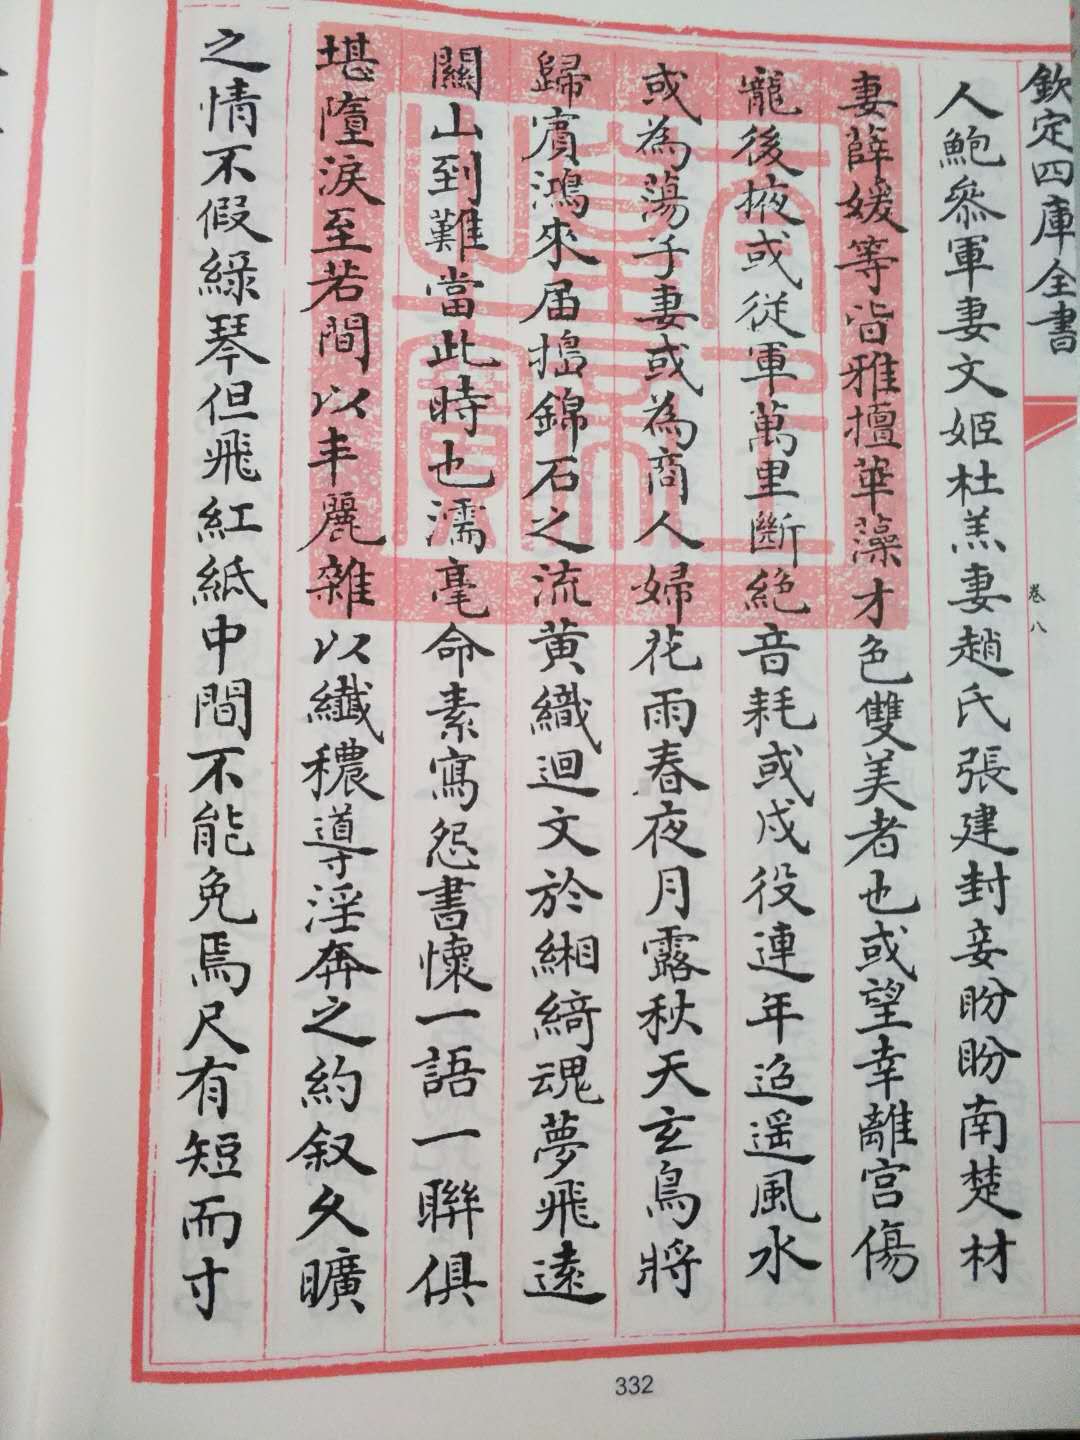 欽定四庫全書
卷八
人鮑叅軍妻文姬杜羔妻趙氏張建封妾盼盼南楚材
妻薛媛等皆雅擅華藻才色雙美者也或望幸離宮傷
寵後掖或従軍萬里斷絶音耗或戍役連年迢遥風水
或為蕩子妻或為商人婦花雨春夜月露秋天玄鳥將
歸賔鴻來届搗錦石之流黄織迴文於緗綺魂夢飛逺
關山到難當此時也濡毫命素寫怨書懷一語一聨俱
堪墮淚至若間以丰麗雜以纎穠導淫奔之約叙久曠
之情不假緑琴但飛紅紙中間不能免焉尺有短而寸
332